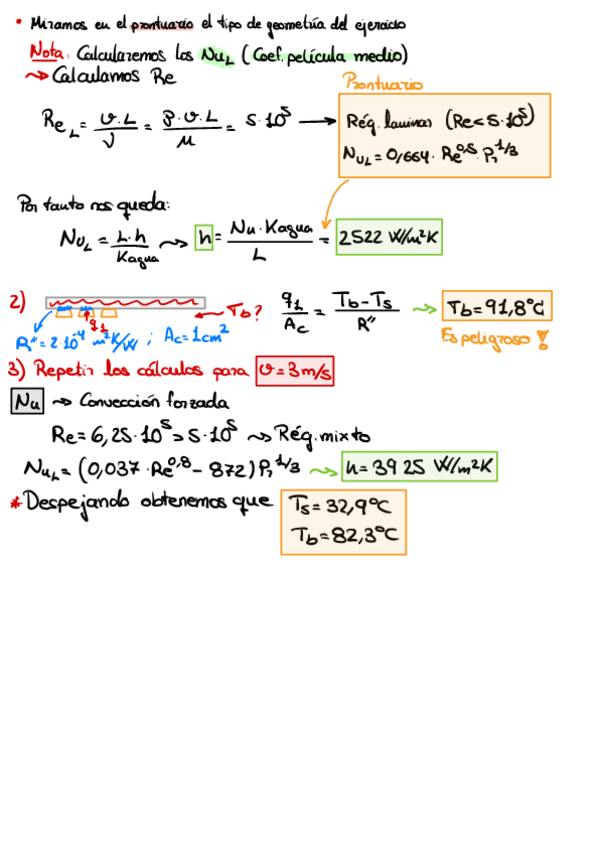 • Miramos en el prontuario el tipo de geometría del ejercicio
Nota: Calcularemos los Nu_L (Coef. película medio)
~> Calculamos Re
Prontuario
Re_L = υ·L / ν = ρ·υ·L / μ = 5·10⁵ → Rég. laminar (Re < 5·10⁵)
Nu_L = 0,664 · Re^0,5 · Pr^1/3
Por tanto nos queda:
Nu_L = L·h / Kagua ~> h = Nu·Kagua / L = 2522 W/m²K
2) ← Tb? q1 / Ac = Tb - Ts / R'' ~> Tb = 91,8°C
q1
R'' = 2·10⁻⁴ m²K/W ; Ac = 1cm²
Es peligroso!
3) Repetir los cálculos para υ = 3 m/s
Nu ~> Convección forzada
Re = 6,25·10⁵ > 5·10⁵ ~> Rég. mixto
Nu_L = (0,037·Re^0,8 - 872) Pr^1/3 ~> h = 3925 W/m²K
* Despejando obtenemos que Ts = 32,9°C
Tb = 82,3°C